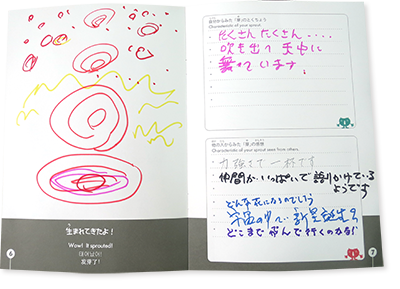 生まれてきたよ！
Wow! It sprouted!
태어났어!
发芽了!
6
自分からみた「芽」のとくちょう
Characteristic of your sprout.
たくさん たくさん・・・・
吹き出て 手中に
舞っています！
他の人からみた「芽」の感想
Characteristic of your sprout seen from others.
力強さで一杯です
仲間がいっぱいで 語りかけている
ようです
どんな花になるのでしょう
宇宙の中で 新星誕生
どこまで 飛んで行くのかな
7